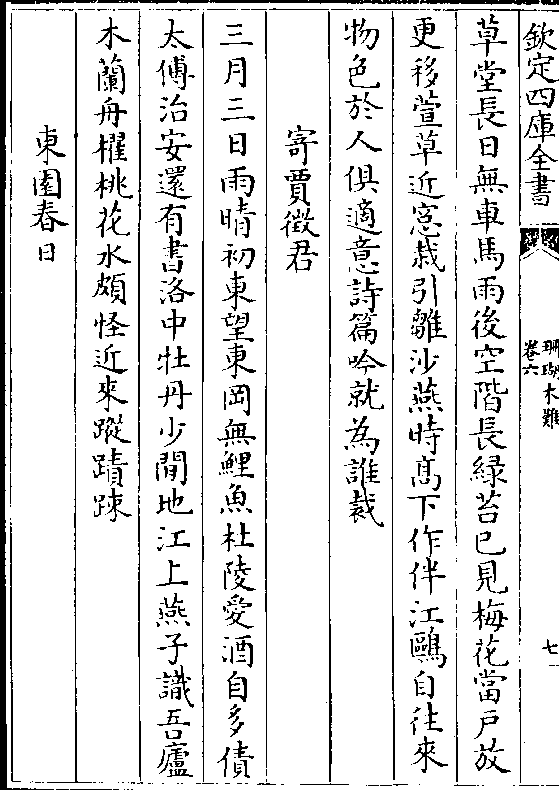 欽定四庫全書
珊瑚木難
卷六
七
草堂長日無車馬雨後空階長緑苔已見梅花當戸放
更移萱草近窓栽引雛沙燕時髙下作伴江鷗自往來
物色於人俱適意詩篇吟就為誰裁
寄賈徵君
三月三日雨晴初東望東岡無鯉魚杜陵愛酒自多債
太傅治安還有書洛中牡丹少閒地江上燕子識吾廬
木蘭舟櫂桃花水頗怪近來蹤蹟踈
東園春日